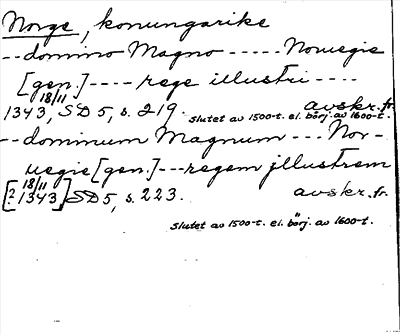 Norge, konungarike
-- domino Magno ----- Noruegie
[gen.] ---- rege illustri ----
18/11
1343, SD 5, s. 219. avskr. fr.
slutet av 1500-t. el. börj. av 1600-t.
-- dominum Magnum --- Nor-
uegie [gen.] --- regem jllustrem
18/11
[? 1343] SD 5, s. 223. avskr. fr.
slutet av 1500-t. el. börj. av 1600-t.